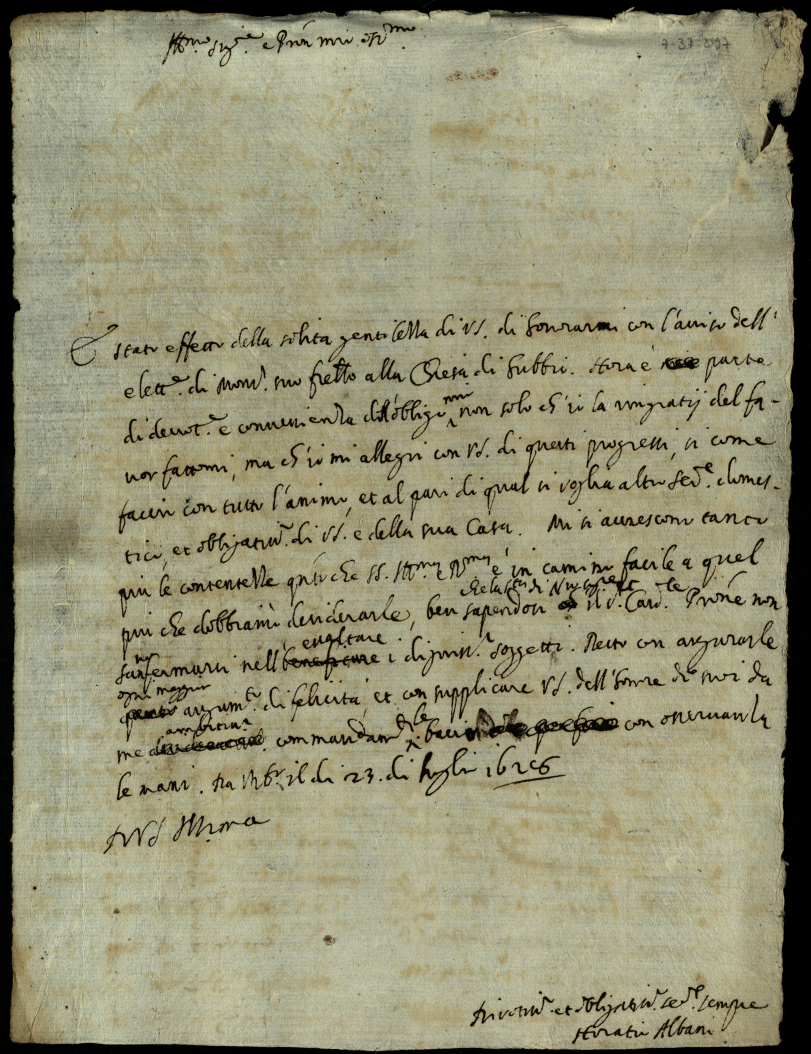 Ill.mo Sig.re e Pron mio oss.mo
7-37-397
E stato effetto della solita gentilezza di VS. di honorarmi con l'aviso dell'
elett.e di Mons.r suo frello alla Chiesa di Suttri. Hora è parte
di devot.e e convenienza dell'obligo mio non solo ch'io la ringratij del fa-
vor fattomi, ma ch'io mi allegri con VS. di questi progressi, si come
faccio con tutto l'animo, et al pari di qual si voglia altro Ser.re domes-
tico, et obligatiss.o di VS. e della sua Casa. Mi si accrescono tanto
più le contentezze q.to che SS. Ill.ma e R.ma è in camino facile a quel
più che dobbiamo desiderarle, ben sapendosi che la S.tà di N. Sig.re et il S. Card.le Prone non
san fermarsi nell' essaltare i di soggetti. Resto con augurarle
ogni maggior augum.to di felicità, et con supplicare VS. dell'honore de suoi da
me ambitiss.i commandam.ti le bacio con osservanza
le mani. Da Urb.o il di 23. di luglio 1626
Di VS Ill.ma
Divotiss.o et obligatiss.o se.re sempre
Horatio Albani